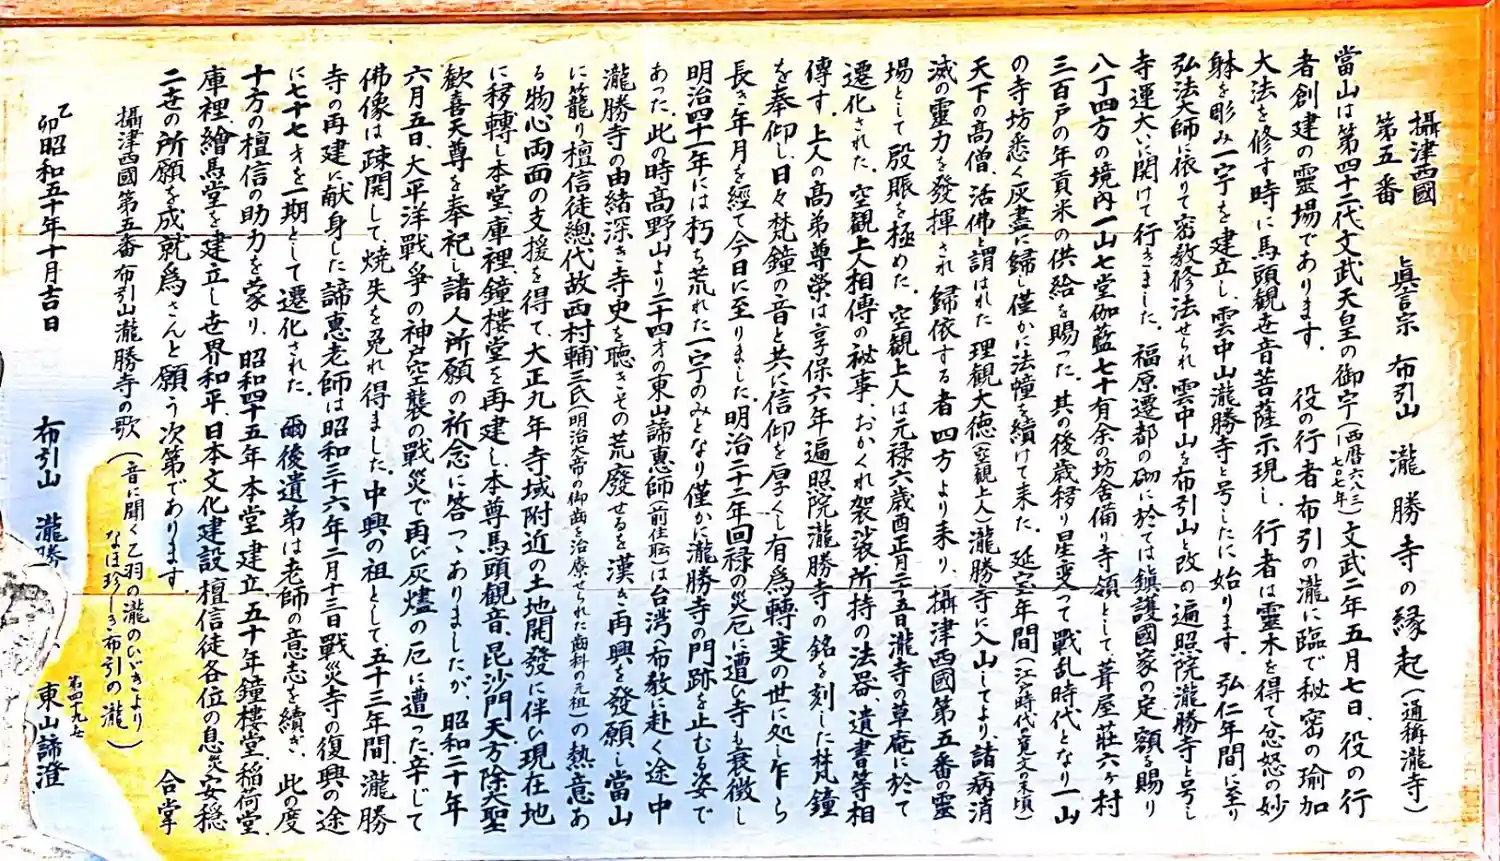 攝津西國
第五番
眞言宗 布引山 瀧勝寺の縁起(通稱瀧寺)
當山は第四十二代文武天皇の御宇(西暦六八三)(七七年)文武二年五月七日、役の行
者創建の靈場であります。 役の行者布引の瀧に臨で秘密の瑜加
大法を修す時に馬頭観世音菩薩示現し、行者は靈木を得て忿怒の妙
躰を彫み一宇を建立し、雲中山瀧勝寺と号したに始ります。 弘仁年間に至り
弘法大師に依りて密教修法せられ雲中山を布引山と改め遍照院瀧勝寺と号し
寺運大いに開けて行きました。 福原遷都の砌に於ては鎮護國家の定額を賜り
八丁四方の境内一山七堂伽藍七十有余の坊舎備り寺領として、葺屋莊六ヶ村
三百戸の年貢米の供給を賜った。其の後歳移り星変って戰乱時代となり一山
の寺坊悉く灰盡に歸し僅かに法幢を續けて来た。延宝年間(江戸時代の寛文の末頃)
天下の高僧、活佛と謂はれた理観大徳(空観上人)瀧勝寺に入山してより、諸病消
滅の靈力を發揮され歸依する者四方より来り、攝津西國第五番の靈
場として殷賑を極めた。空観上人は元禄六歳酉正月二十五日瀧寺の草庵に於て
遷化された。空観上人相傳の祕事、おかくれ袈裟、所持の法器、遺書等相
傳す。上人の高弟尊榮は享保六年遍照院瀧勝寺の銘を刻した梵鐘
を奉仰し、日々梵鐘の音と共に信仰を厚くし有為轉変の世に処し乍ら
長き年月を經て今日に至りました。明治二十二年回禄の災厄に遭ひ寺も衰微し
明治四十一年には朽ち荒れた一宇のみとなり僅かに瀧勝寺の門跡を止むる姿で
あった。此の時高野山より二十四才の東山諦惠師(前住職)は台湾布教に赴く途中
瀧勝寺の由緒深き寺史を聴きその荒廢せるを漢き再興を發願し當山
に籠り檀信徒總代故西村輔三氏(明治大帝の御歯を治療せられた歯科の元祖)の熱意あ
る物心両面の支援を得て、大正九年寺域附近の土地開發に伴ひ現在地
に移轉し本堂、庫裡、鐘樓堂を再建し、本尊馬頭観音、昆沙門天、方除大聖
歓喜天尊を奉祀し諸人所願の祈念に答つゝありましたが、昭和二十年
六月五日、大平洋戰爭の神戸空襲の戰災で再び灰燼の厄に遭った。辛じて
佛像は疎開して焼失を免れ得ました。中興の祖として、五十三年間、瀧勝
寺の再建に献身した諦惠老師は昭和三十六年二月十三日戰災寺の復興の途
に七十七才を一期として遷化された。 爾後遺弟は老師の意志を續ぎ、此の度
十方の檀信の助力を蒙り、昭和四十五年本堂建立、五十年鐘樓堂、稲荷堂、
庫裡、繪馬堂を建立し世界和平、日本文化建設、檀信徒各位の息災安穏
二世の所願を成就為さんと願う次第であります。 合掌
攝津西國第五番布引山瀧勝寺の歌(音に聞く乙羽の瀧のひゞきより
なほ珍しき布引の瀧)
乙卯昭和五十年十月吉日 布引山 瀧勝
第四十九世
東山諦澄